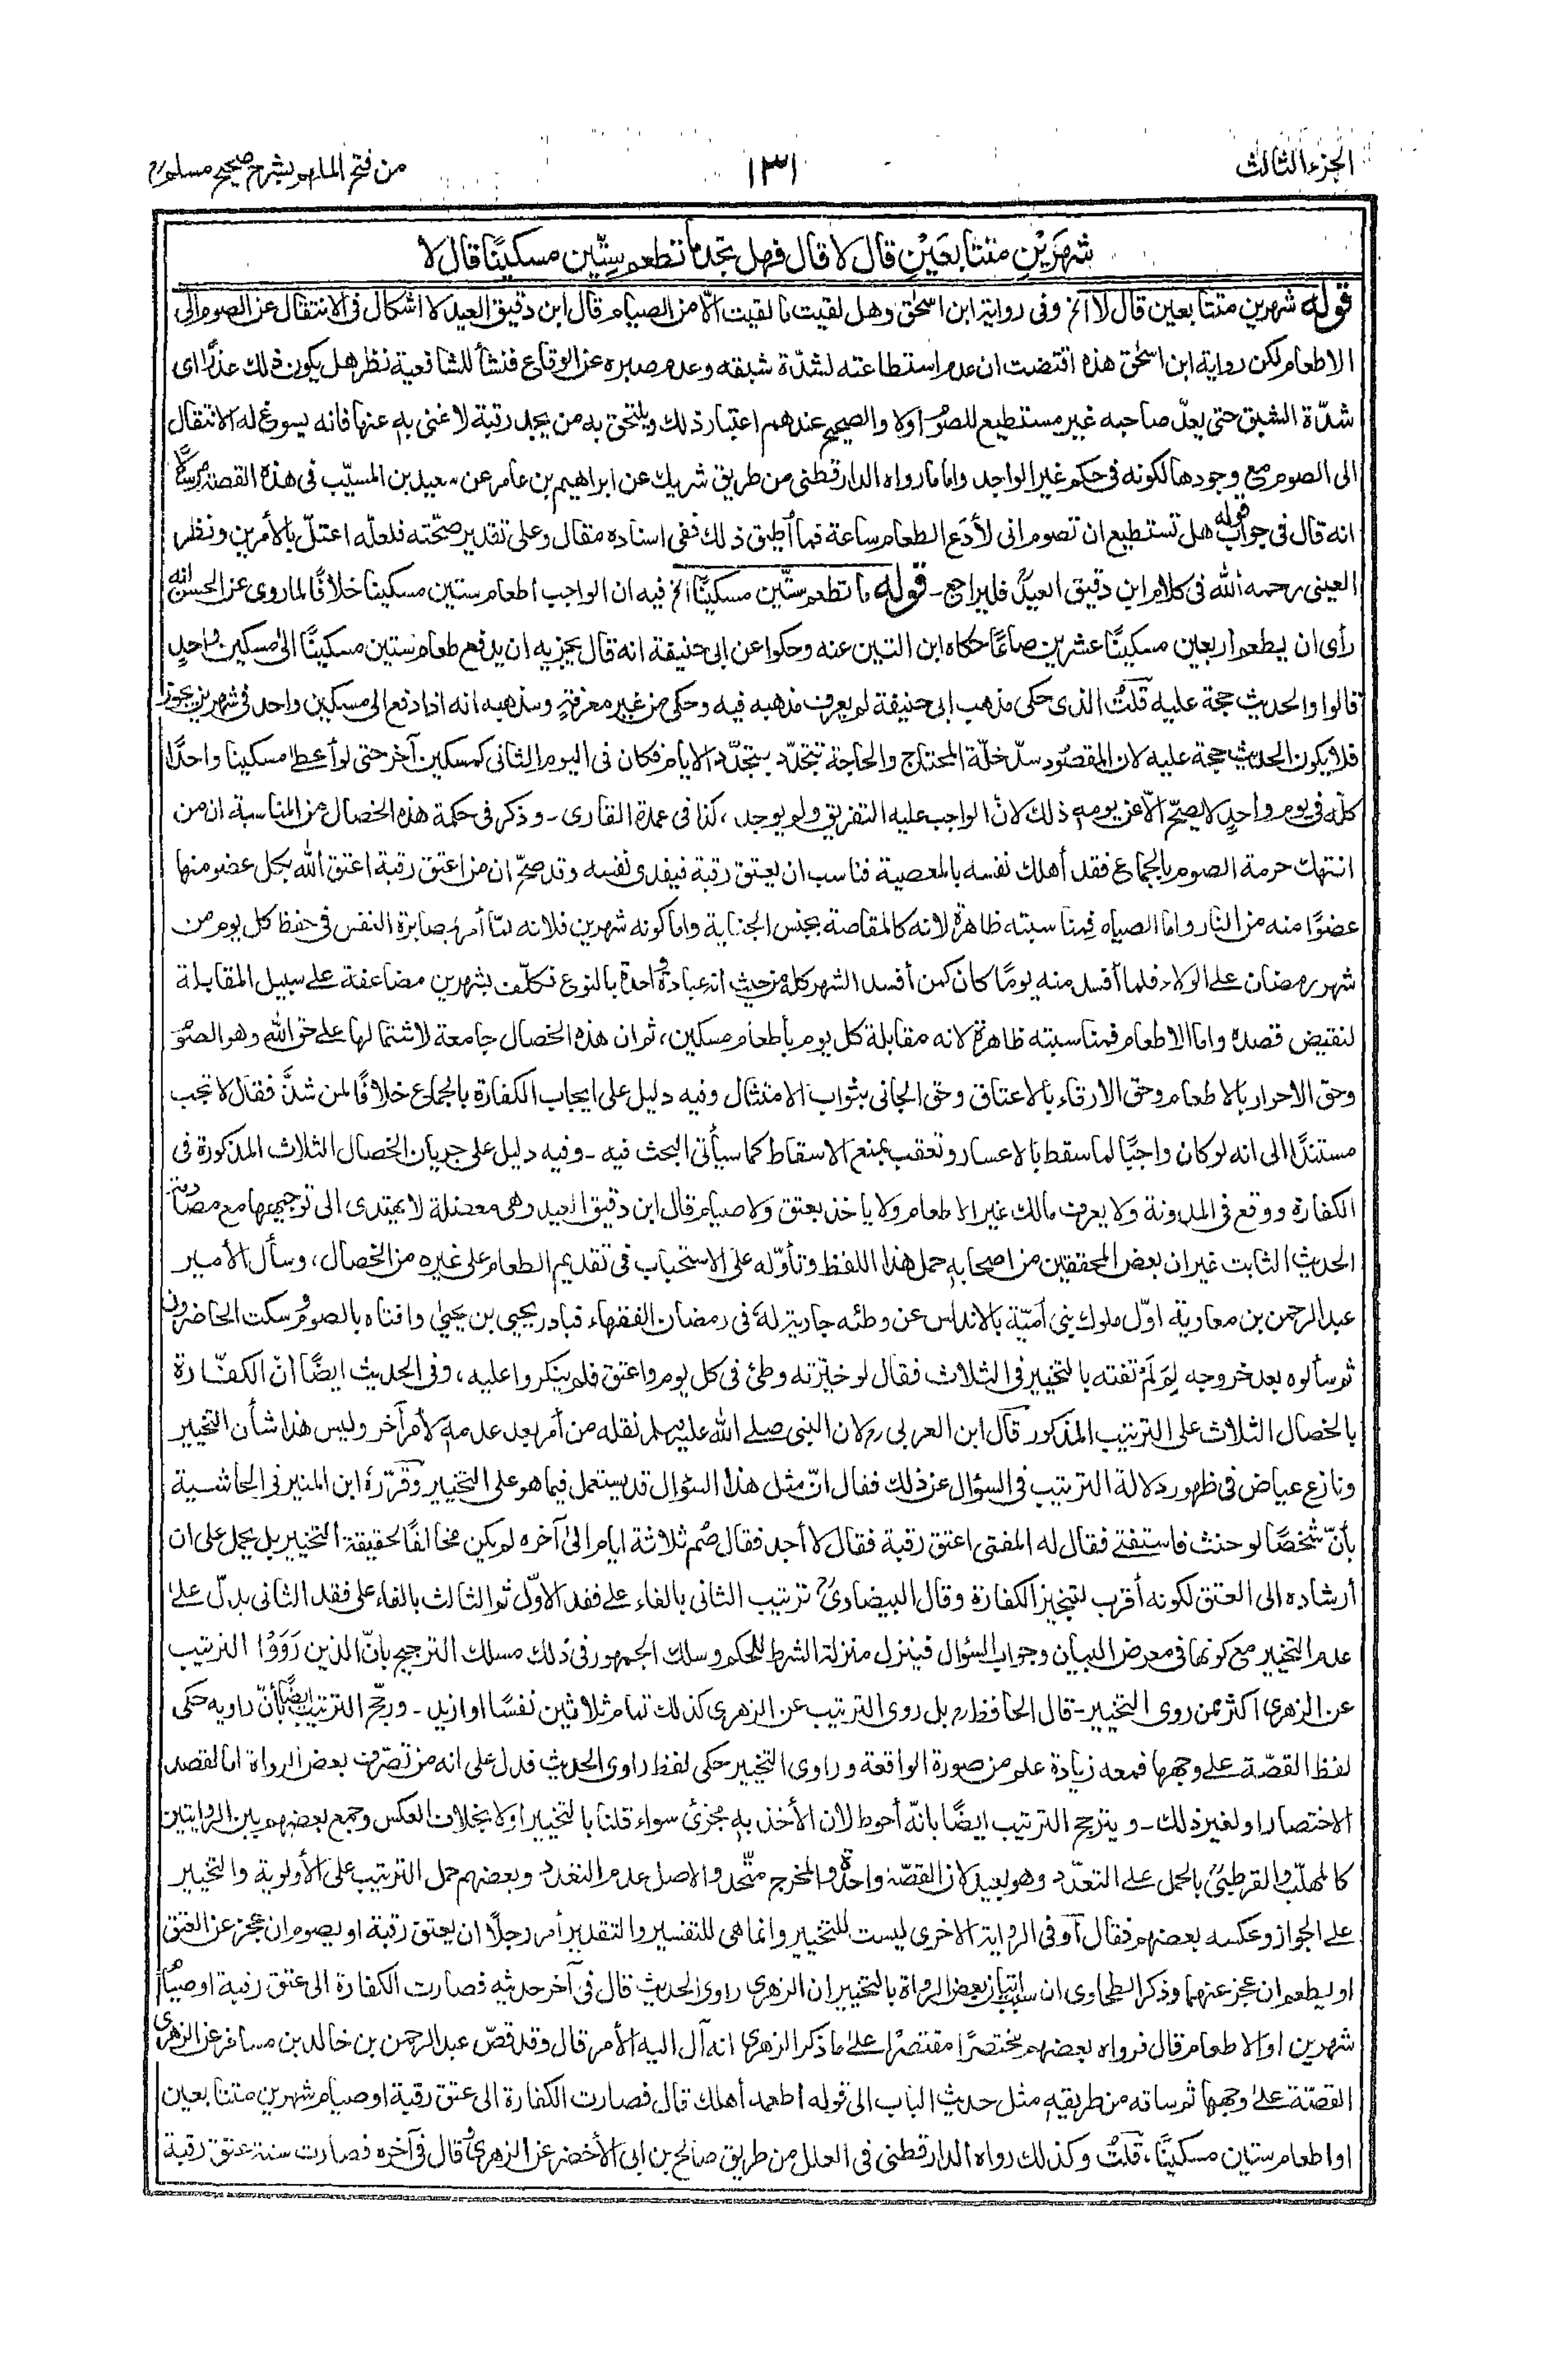 الجزء الثالث
١٣١
من فتح الملهم بشرح صحيح مسلم
شهرَيْنِ متتابعَيْنِ قال لا قال فهل تجد ما تطعم ستّين مسكينًا قال لا
قوله شهرين متتابعين قال لا الخ وفى رواية ابن اسحٰق وهل لقيت ما لقيت الّا من الصيام قال ابن دقيق العيد لا اشكال فى الانتقال عن الصوم الى
الاطعام لكن رواية ابن اسحٰق هذه اقتضت ان عدم استطاعته لشدّة شبقه وعدم صبره عن الوقاع فنشأ للشافعية نظر هل يكون ذلك عذرًا اى
شدّة الشبق حتى يعدّ صاحبه غير مستطيع للصوم اولا والصحيح عندهم اعتبار ذلك ويلتحق به من يجد رقبة لا غنى به عنها فانه يسوغ له الانتقال
الى الصوم مع وجودها لكونه فى حكم غير الواجد واما ما رواه الدارقطنى من طريق شريك عن ابراهيم بن عامر عن سعيد بن المسيّب فى هذه القصة مرسلًا
انه قال فى جواب قوله هل تستطيع ان تصوم انى لأدَع الطعام ساعة فما أطيق ذلك ففى اسناده مقال وعلى تقدير صحّته فلعلّه اعتلّ بالأمرين ونظر
العينى رحمه الله فى كلام ابن دقيق العيد فليراجع - قوله ما تطعم ستّين مسكينًا الخ فيه ان الواجب اطعام ستين مسكينا خلافًا لما روى عن الحسن انه
رأى ان يطعم اربعين مسكينًا عشرين صاعًا حكاه ابن التين عنه وحكوا عن ابى حنيفة انه قال يجزيه ان يدفع طعام ستين مسكينًا الى مسكين واحدٍ
قالوا والحديث حجة عليه قلتُ الذى حكى مذهب ابى حنيفة لم يعرف مذهبه فيه وحكى من غير معرفةٍ ومذهبه انه اذا دفع الى مسكين واحد فى شهرين يجوز
فلا يكون الحديث حجة عليه لان المقصود سدّ خلّة المحتاج والحاجة تتجدّد بتجدّد الايام فكان فى اليوم الثانى كمسكين آخر حتى لو أعطى مسكينا واحدًا
كلّه فى يوم واحدٍ لا يصحّ الّا عن يومه ذلك لانّ الواجب عليه التفريق ولم يوجد ، كذا فى عمدة القارى - وذكر فى حكمة هذه الخصال من المناسبة ان من
انتهك حرمة الصوم بالجماع فقد أهلك نفسه بالمعصية فناسب ان يعتق رقبة فيفدى نفسه وقد صحّ ان من اعتق رقبة اعتق الله بكل عضو منها
عضوًا منه من النار واما الصيام فمناسبته ظاهرة لانه كالمقاصة بجنس الجناية واما كونه شهرين فلانه لمّا أمر بمصابرة النفس فى حفظ كل يوم من
شهر رمضان على الولاء فلما أفسد منه يومًا كان كمن أفسد الشهر كله من حيث انه عبادة واحدة بالنوع فكلّف بشهرين مضاعفة على سبيل المقابلة
لنقيض قصده واما الاطعام فمناسبته ظاهرة لانه مقابلة كل يوم بأطعام مسكين ، ثم ان هذه الخصال جامعة لاشتمالها على حق الله وهو الصوم
وحق الاحرار بالاطعام وحق الارقاء بالاعتاق وحق الجانى بثواب الامتثال وفيه دليل على ايجاب الكفارة بالجماع خلافًا لمن شذّ فقال لا تجب
مستندًا الى انه لو كان واجبًا لما سقط بالاعسار وتعقب بمنع الاسقاط كما سيأتى البحث فيه - وفيه دليل على جريان الخصال الثلاث المذكورة فى
الكفارة ووقع فى المدونة ولا يعرف مالك غير الاطعام ولا ياخذ بعتق ولا صيام قال ابن دقيق العيد وهى معضلة لا يهتدى الى توجيهها مع مصادمة
الحديث الثابت غير ان بعض المحققين من اصحابه حمل هذا اللفظ وتأوّله على الاستحباب فى تقديم الطعام على غيره من الخصال ، وسأل الأمير
عبد الرحمن بن معاوية اوّل ملوك بنى أميّة بالاندلس عن وطئه جارية له فى رمضان الفقهاء فبادر يحيى بن يحيىٰ وافتاه بالصوم وسكت الحاضرون
ثم سألوه بعد خروجه لِمَ لَمْ تفته بالتخيير فى الثلاث فقال لو خيّرته وطئ فى كل يوم واعتق فلم ينكروا عليه ، وفى الحديث ايضًا انّ الكفّارة
بالخصال الثلاث على الترتيب المذكور قال ابن العربى رح لان النبى صلى الله عليه وسلم نقله من أمر بعد عدمه لأمر آخر وليس هذا شأن التخيير
ونازع عياض فى ظهور دلالة الترتيب فى السؤال عن ذلك فقال انّ مثل هذا السّؤال قد يستعمل فيما هو على التخيير وقرّره ابن المنير فى الحاشية
بأنّ شخصًا لو حنث فاستفتىٰ فقال له المفتى اعتق رقبة فقال لا أجد فقال صُم ثلاثة ايام الىٰ آخره لم يكن مخالفًا لحقيقة التخيير بل يحمل على ان
أرشاده الى العتق لكونه أقرب لتنجيز الكفارة وقال البيضاوى ترتيب الثانى بالفاء على فقد الاوّل ثم الثالث بالفاء على فقد الثانى يدلّ علىٰ
عدم التخيير مع كونها فى معرض البيان وجواب السؤال فينزل منزلة الشرط للحكم وسلك الجمهور فى ذلك مسلك الترجيح بانّ الذين رَوَوْا الترتيب
عن الزهرى اكثر ممن روى التخيير - قال الحافظ رح بل روى الترتيب عن الزهرى كذلك تمام ثلاثين نفسًا او ازيد - ورجّح الترتيب ايضًا بأنّ راويه حكى
لفظ القصّة على وجهها فمعه زيادة علم من صورة الواقعة وراوى التخيير حكى لفظ راوى الحديث فدل على انه من تصرّف بعض الرواة اما لقصد
الاختصار او لغير ذلك - ويترجح الترتيب ايضًا بانّه أحوط لان الأخذ به مُجزئ سواء قلنا بالتخيير اولا بخلاف العكس وجمع بعضهم بين الروايتين
كالمهلّب والقرطبىّ بالحمل على التعدّد وهو بعيد لان القصّة واحدة والمخرج متّحد والاصل عدم التعدد وبعضهم حمل الترتيب على الأولوية والتخيير
على الجواز وعكسه بعضهم فقال أو فى الرواية الاخرى ليست للتخيير وانما هى للتفسير والتقدير أمر رجلًا ان يعتق رقبة او يصوم ان عجز عن العتق
او يطعم ان عجز عنهما وذكر الطحاوى ان سبب اتيان بعض الرواة بالتخيير ان الزهرى راوى الحديث قال فى آخر حديثه فصارت الكفارة الى عتق رقبة او صيام
شهرين او الاطعام قال فرواه بعضهم مختصرًا مقتصرًا علىٰ ما ذكر الزهرى انه آل اليه الأمر قال وقد قصّ عبد الرحمن بن خالد بن مسافر عن الزهرى
القصّة علىٰ وجهها ثم ساقه من طريقه مثل حديث الباب الى قوله اطعمه أهلك قال فصارت الكفارة الى عتق رقبة او صيام شهرين متتابعين
او اطعام ستين مسكينًا ، قلتُ وكذلك رواه الدارقطنى فى العلل من طريق صالح بن ابى الأخضر عن الزهرى قال فى آخره فصارت سنة عتق رقبة